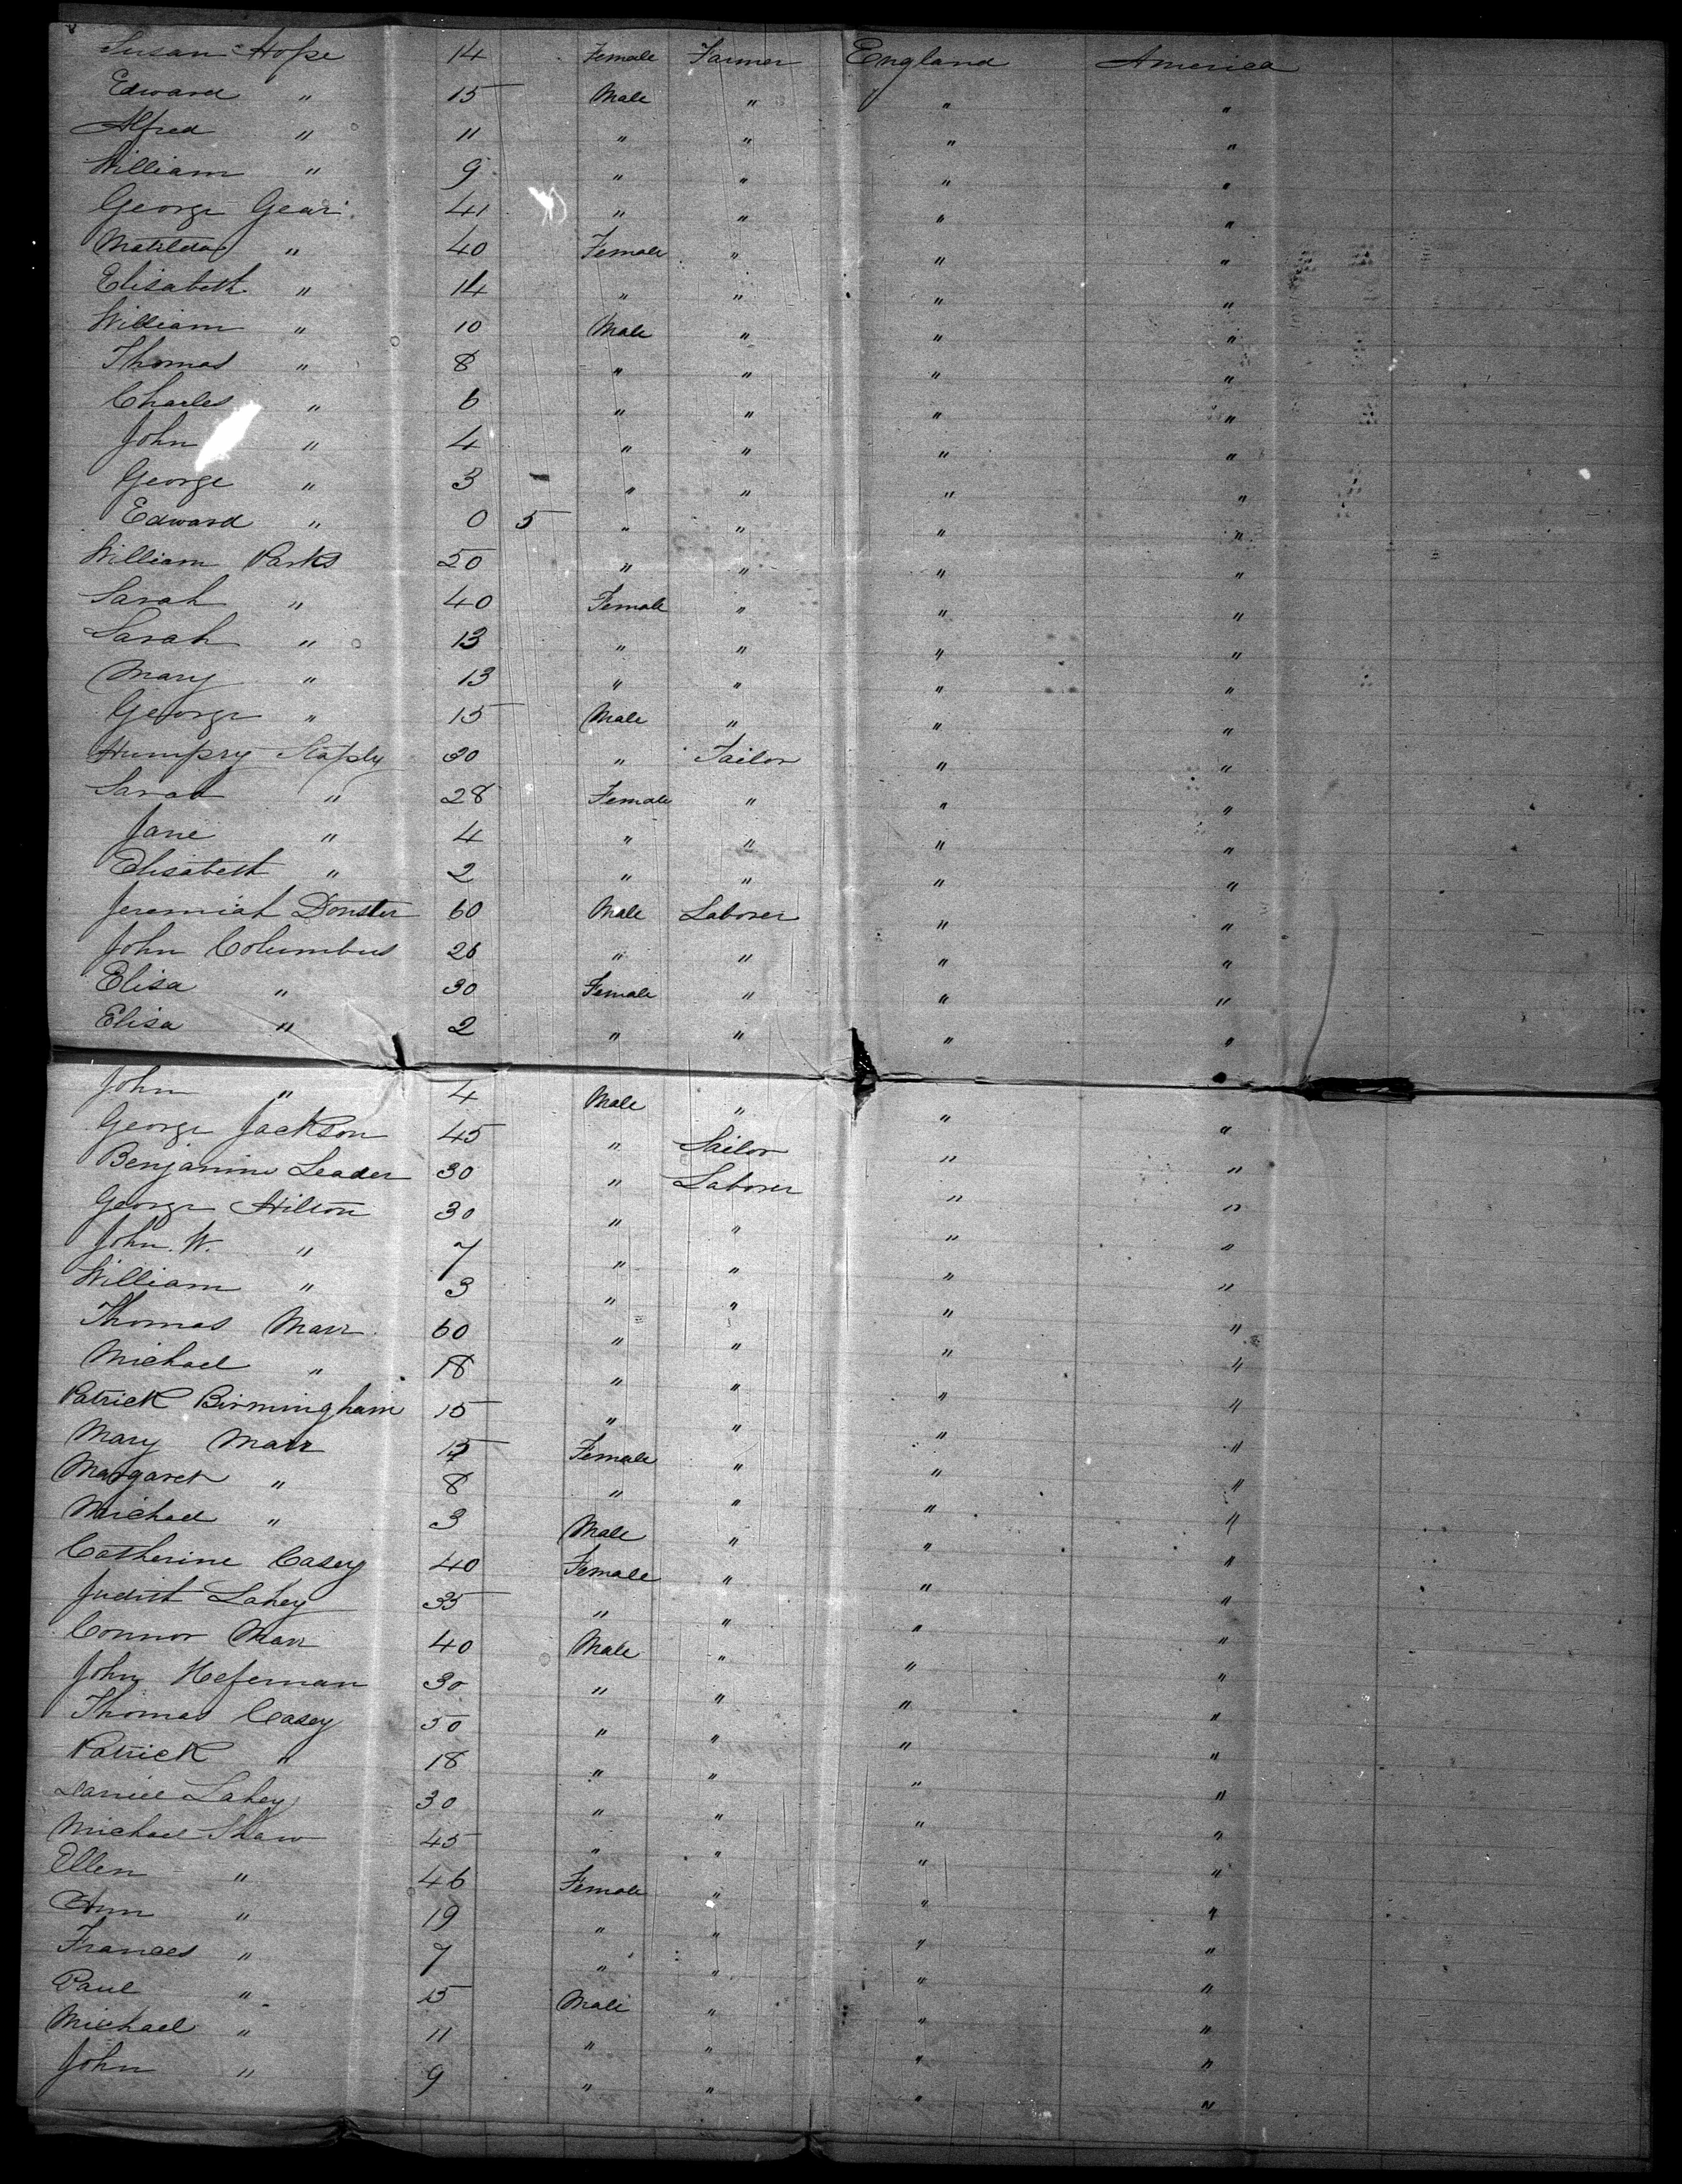 Susan Hope 14 Female Farmer England America
Edward " 15 Male " " "
Alfred " 11 " " " "
William " 9 " " " "
George Gear 41 " " " "
Matilda " 40 Female " " "
Elisabeth " 14 " " " "
William " 10 Male " " "
Thomas " 8 " " " "
Charles " 6 " " " "
John " 4 " " " "
George " 3 " " " "
Edward " 0 5 " " " "
William Parks 50 " " " "
Sarah " 40 Female " " "
Sarah " 13 " " " "
Mary " 13 " " " "
George " 15 Male " " "
Humpry Staply 30 " Tailor " "
Sarah " 28 Female " " "
Jane " 4 " " " "
Elisabeth " 2 " " " "
Jeremiah Donster 60 Male Laborer " "
John Columbus 26 " " " "
Elisa " 30 Female " " "
Elisa " 2 " " " "
John " 4 Male " " "
George Jackson 45 " Sailor " "
Benjamine Leader 30 " Laborer " "
George Hilton 30 " " " "
John W. " 7 " " " "
William " 3 " " " "
Thomas Marr 60 " " " "
Michael " 18 " " " "
Patrick Birmingham 15 " " " "
Mary Marr 15 Female " " "
Margaret " 8 " " " "
Michael " 3 Male " " "
Catherine Casey 40 Female " " "
Judith Lahey 35 " " " "
Connor Marr 40 Male " " "
John Hefernan 30 " " " "
Thomas Casey 50 " " " "
Patrick " 18 " " " "
Daniel Lahey 30 " " " "
Michael Shaw 45 " " " "
Ellen " 46 Female " " "
Ann " 19 " " " "
Frances " 7 " " " "
Paul " 15 Male " " "
Michael " 11 " " " "
John " 9 " " " "